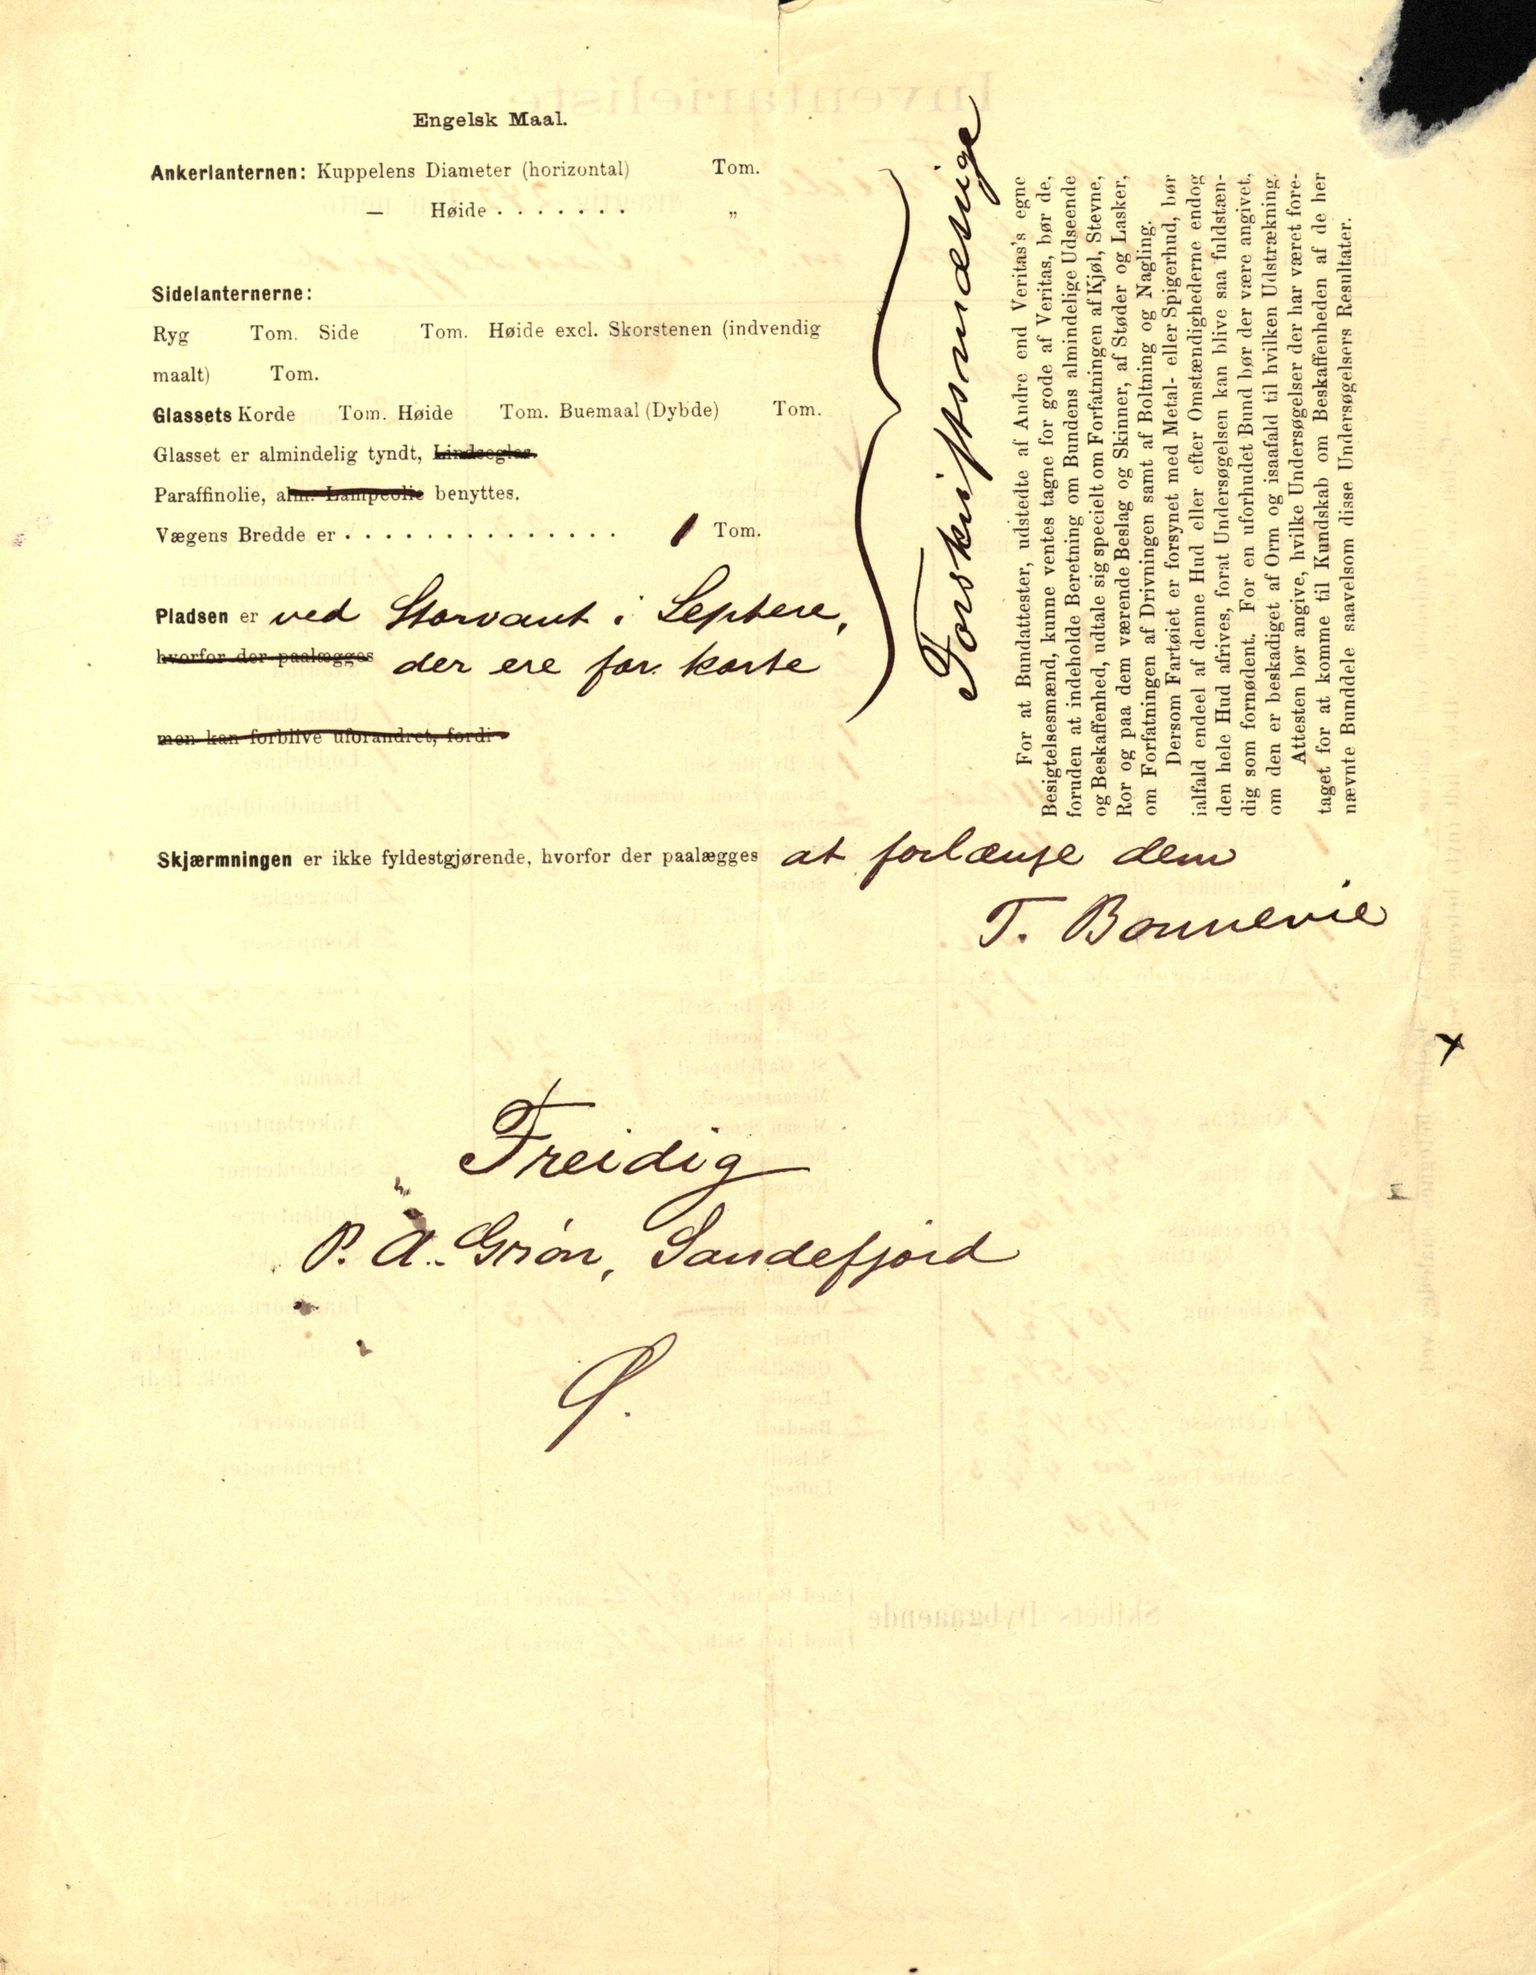 Engelsk Maal.
Ankerlanternen: Kuppelens Diameter (horizontal) Tom.
— Høide . . . . . . . „
Sidelanternerne:
Ryg Tom. Side Tom. Høide excl. Skorstenen (indvendig
maalt) Tom.
Glassets Korde Tom. Høide Tom. Buemaal (Dybde) Tom.
Glasset er almindelig tyndt, Lindseglas.
Paraffinolie, alm. Lampeolie benyttes.
Vægens Bredde er . . . . . . . . . . . . . . 1 Tom.
Pladsen er ved Storvant i Septere,
hvorfor der paalægges der ere for korte
men kan forblive uforandret, fordi
Forskriftsmæsige
For at Bundattester, udstedte af Andre end Veritas's egne
Besigtelsesmænd, kunne ventes tagne for gode af Veritas, bør de,
foruden at indeholde Beretning om Bundens almindelige Udseende
og Beskaffenhed, udtale sig specielt om Forfatningen af Kjøl, Stevne,
Ror og paa dem værende Beslag og Skinner, af Støder og Lasker,
om Forfatningen af Drivningen samt af Boltning og Nagling.
Dersom Fartøiet er forsynet med Metal- eller Spigerhud, bør
ialfald endeel af denne Hud eller efter Omstændighederne endog
den hele Hud afrives, forat Undersøgelsen kan blive saa fuldstæn-
dig som fornødent. For en uforhudet Bund bør der være angivet,
om den er beskadiget af Orm og isaafald til hvilken Udstrækning.
Attesten bør angive, hvilke Undersøgelser der har været fore-
taget for at komme til Kundskab om Beskaffenheden af de her
nævnte Bunddele saavelsom disse Undersøgelsers Resultater.
Skjærmningen er ikke fyldestgjørende, hvorfor der paalægges at forlænge dem
T. Bonnevie
Freidig
P. A. Grøn, Sandefjord
Ø.